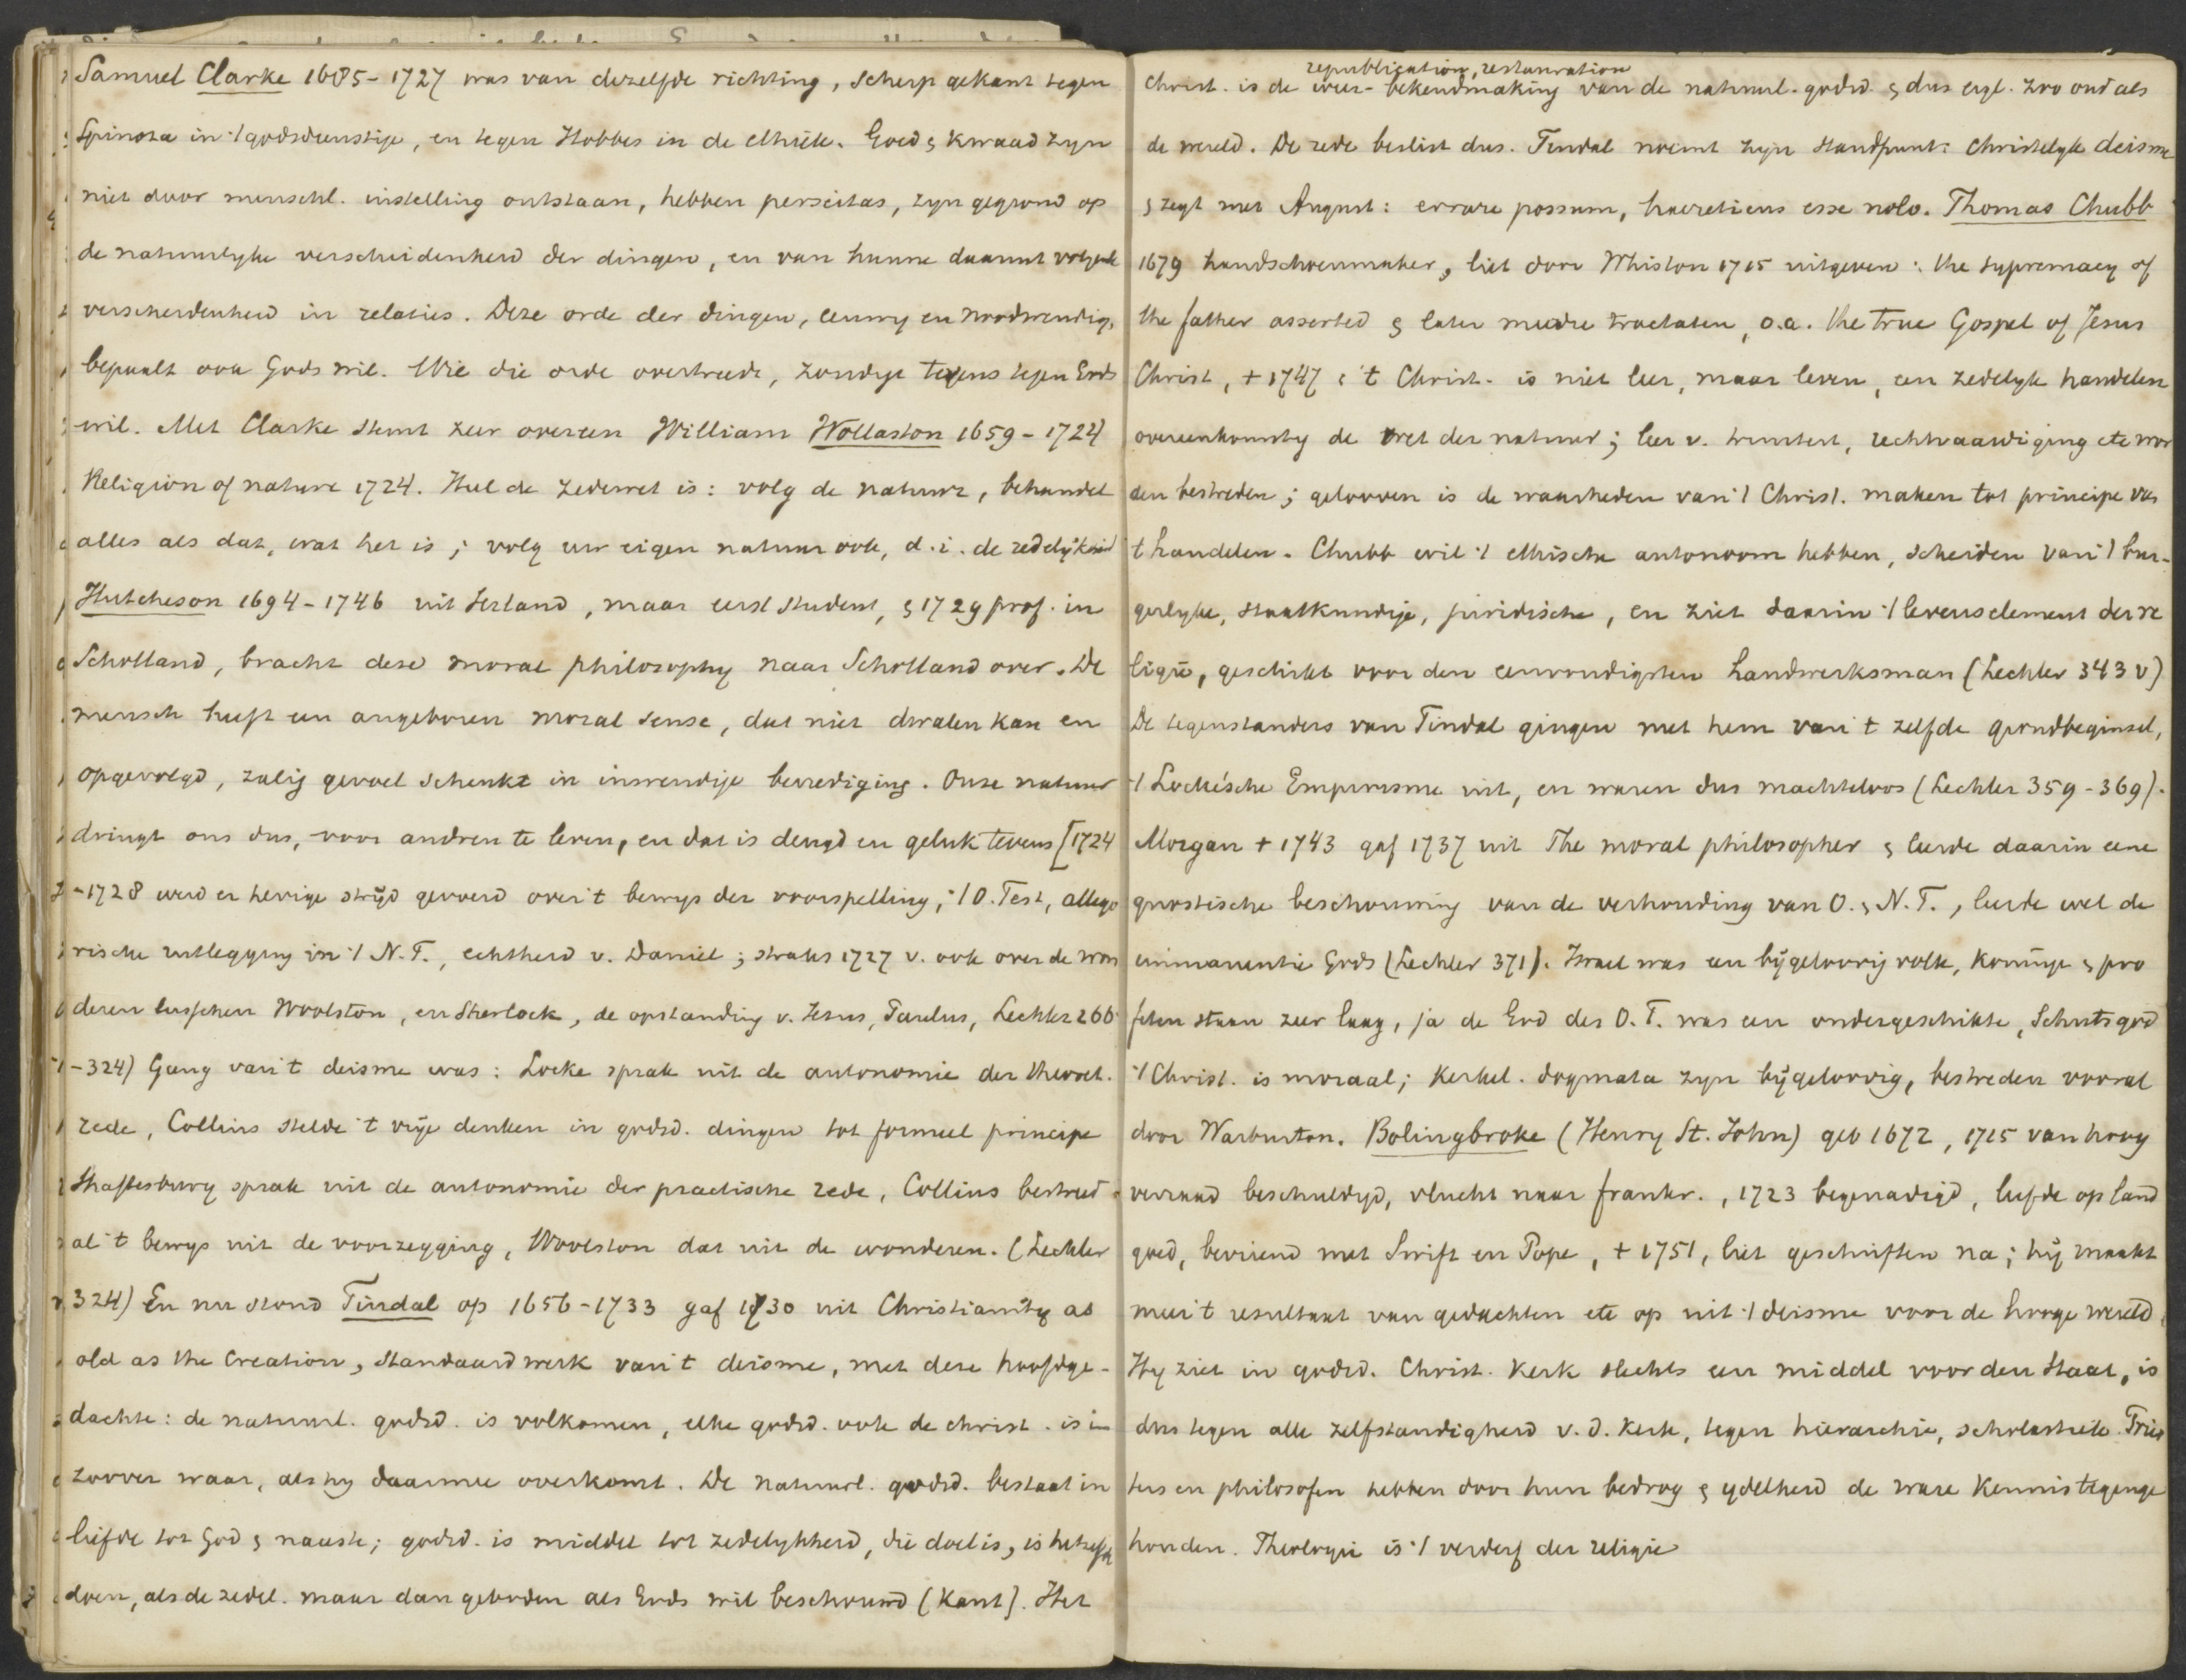 Samuel Clarke 1685-1727 was van dezelfde richting, scherp gekant tegen
Spinoza in 't godsdienstige, en tegen Hobbes in de ethiek. Goed & kwaad zyn
niet door menschl. instelling ontstaan, hebben perseitas, zyn gegrond op
de natuurlyke verscheidenheid der dingen, en van hunne daaruit volgende
verscheidenheid in relaties. Deze orde der dingen, eeuwig en noodwendig,
bepaalt ook Gods wil. Wie die orde overtreedt, zondigt tevens tegen Gods
wil. Met Clarke stemt zeer overeen William Wollaston 1659-1724
Religion of nature 1724. Heel de zedewet is: volg de natuur, behandel
alles als dat, wat het is; volg uw eigen natuur ook, d.i. de redelijkheid
Hutcheson 1694-1746 uit Ierland, maar eerst student, & 1729 prof. in
Schotland, bracht deze moral philosophy naar Schotland over. De
mensch heeft een angeboren moral sense, dat niet dwalen kan en
opgevolgd, zalig gevoel schenkt in inwendige bevrediging. Onze natuur
dringt ons dus, voor andren te leven, en dat is deugd en geluk tevens [1724
-1728 werd er hevige strijd gevoerd over 't bewys der voorspelling, 't O. Test, allego
rische uitlegging in 't N.T., echtheid v. Daniel; straks 1727 v. ook over de won
deren tusschen Woolston, en Sherlock, de opstanding v. Jezus, Paulus, Lechler 266
-324) Gang van 't deisme was: Locke sprak uit de autonomie der theoret.
rede, Collins stelde 't vrije denken in godsd. dingen tot formeel principe
Shaftesbury sprak uit de autonomie der practische rede, Collins bestreed
al 't bewys uit de voorzegging, Woolston dat uit de wonderen. (Lechler
324) En nu stond Tindal op 1656-1733 gaf 1730 uit Christianity as
old as the Creation, standaardwerk van 't deisme, met deze hoofdge-
dachte: de natuurl. godsd. is volkomen, elke godsd. ook de christ. is in
zoover waar, als hy daarmee overkomt. De natuurl. godsd. bestaat in
liefde tot God & naaste; godsd. is middel tot zedelykheid, die doel is, is hetzelfde
doen, als de zedel. maar dan geboden als Gods wil beschouwd (Kant). Het
republication, restauration
Christ. is de weer-bekendmaking van de natuurl. godsd. & dus eigl. zoo oud als
de wereld. De rede beslist dus. Tindal noemt zyn standpunt: Christelyk deisme
& zegt met August: errare possum, haereticus esse nolo. Thomas Chubb
1679 handschoenmaker, liet door Whiston 1715 uitgeven: the supremacy of
the father asserted & later meedre tractaten, o.a. the true Gospel of Jesus
Christ, + 1747: 't Christ. is niet leer, maar leven, een zedelyk handelen
overeenkomstig de wet der natuur; leer v. triniteit, rechtvaardiging etc wor
den bestreden; gelooven is de waarheden van 't Christ. maken tot principe van
't handelen. Chubb wil 't ethische autonoom hebben, scheiden van 't bur-
gerlyke, staatkundige, juridische, en ziet daarin 't levenselement der re
ligie, geschikt voor den eenvoudigsten handwerksman (Lechler 343 v)
De tegenstanders van Tindal gingen met hem van 't zelfde grondbeginsel,
't Locke'sche Empirisme uit, en waren dus machteloos (Lechler 359-369).
Morgan + 1743 gaf 1737 uit The moral philosopher & leerde daarin eene
gnostische beschouwing van de verhouding van O. & N.T., leerde wel de
immanentie Gods (Lechler 371). Israel was een bijgeloovig volk, koningen & pro
feten staan zeer laag, ja de God des O.T. was een ondergeschikte, Schutsgod
't Christ. is moraal; kerkel. dogmata zyn bijgeloovig, bestreden vooral
door Warburton. Bolingbroke (Henry St. John) geb 1672, 1715 van hoog
verraad beschuldigd, vlucht naar frankr., 1723 begenadigd, leefde op land
goed, bevriend met Swift en Pope, + 1751, liet geschriften na; hij maakt
meer 't resultaat van gedachten etc op uit 't deisme voor de hooge wereld.
Hy ziet in godsd. Christ. Kerk slechts een middel voor den Staat, is
dus tegen alle zelfstandigheid v.d. Kerk, tegen hierarchie, scholastiek. Pries
ters en philosofen hebben door hun bedrog & ydelheid de ware kennis tegenge
houden. Theologie is 't verderf der religie